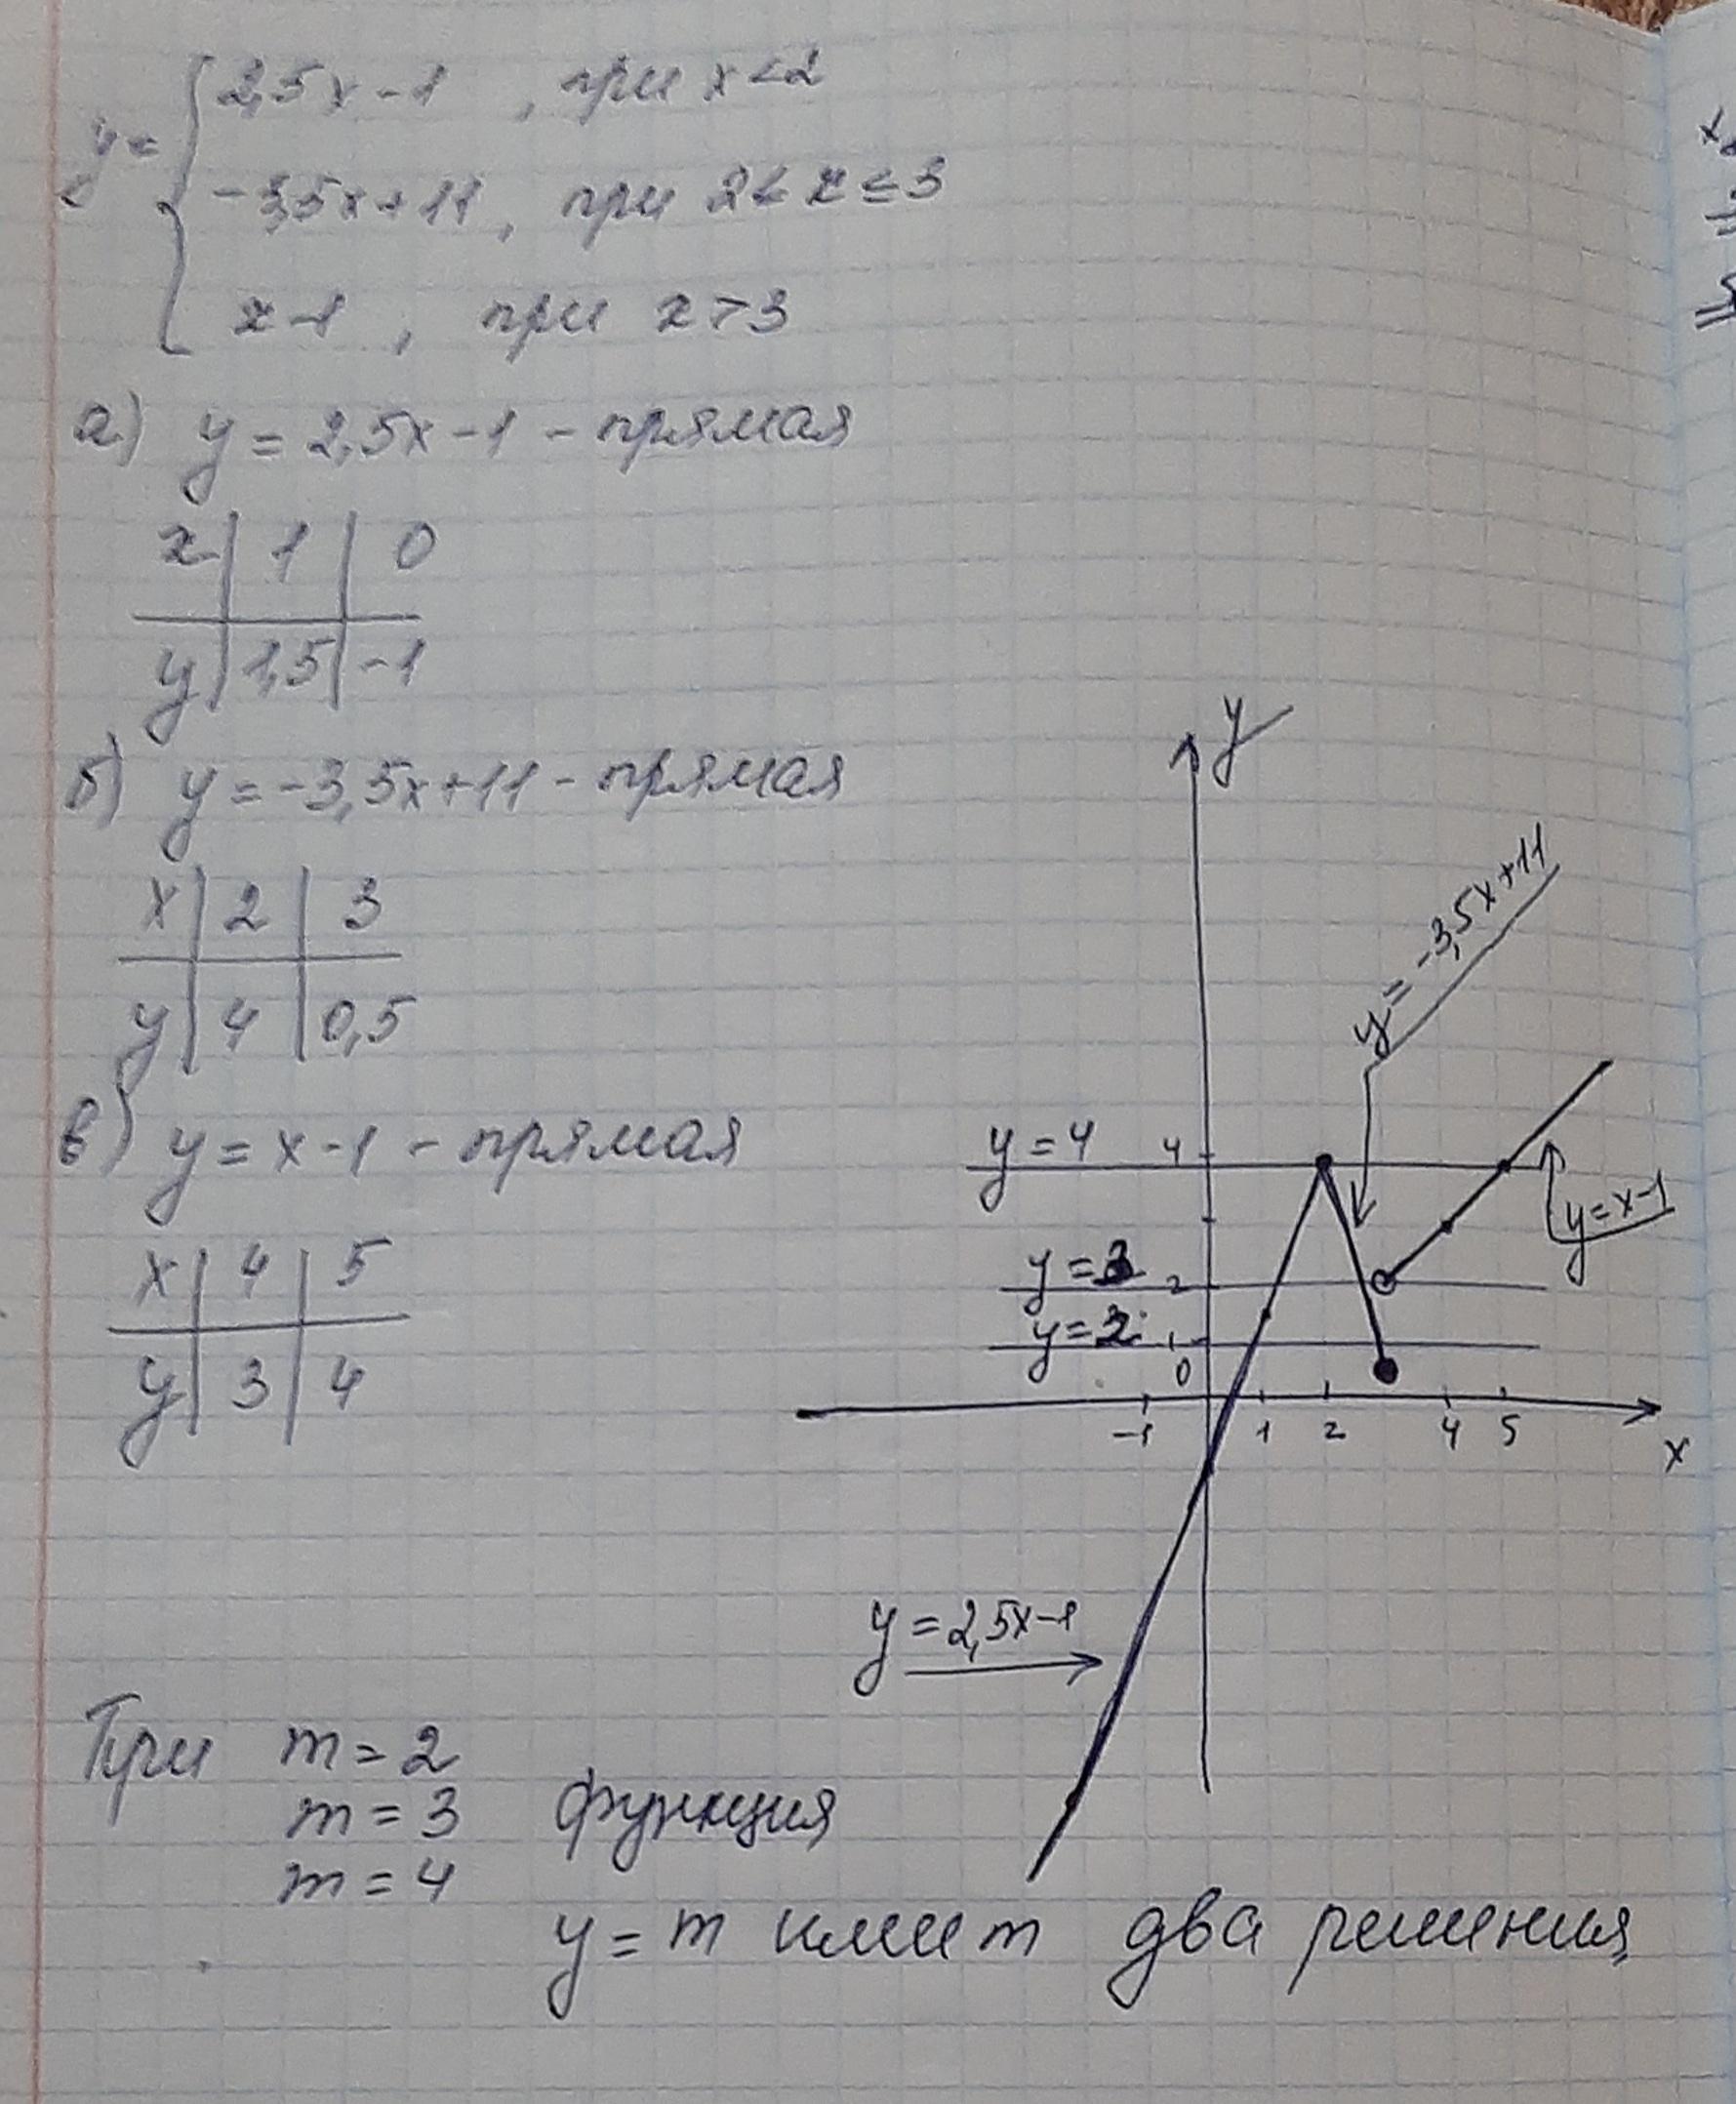 y = { 2,5x - 1 , при x < 2
-3,5x + 11 , при 2 < x ≤ 3
x - 1 , при x > 3
а) y = 2,5x - 1 - прямая
x | 1 | 0
y | 1,5 | -1
б) y = -3,5x + 11 - прямая
x | 2 | 3
y | 4 | 0,5
в) y = x - 1 - прямая
x | 4 | 5
y | 3 | 4
y
y = -3,5x + 11
y = 4 4
y = x - 1
y = 3 2
y = 2 1
0
-1 1 2 4 5
x
y = 2,5x - 1
При m = 2
m = 3 функция
m = 4
y = m имеет два решения